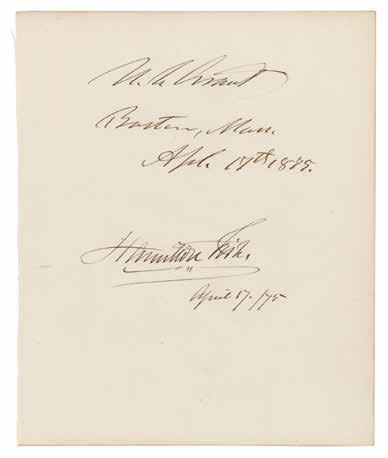 U. S. Grant
Boston, Mass.
Apl. 17th 1875.
Hamilton Fish.
April 17. /75